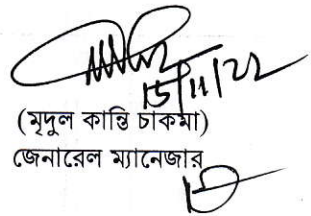 15/11/22
(মৃদুল কান্তি চাকমা)
জেনারেল ম্যানেজার